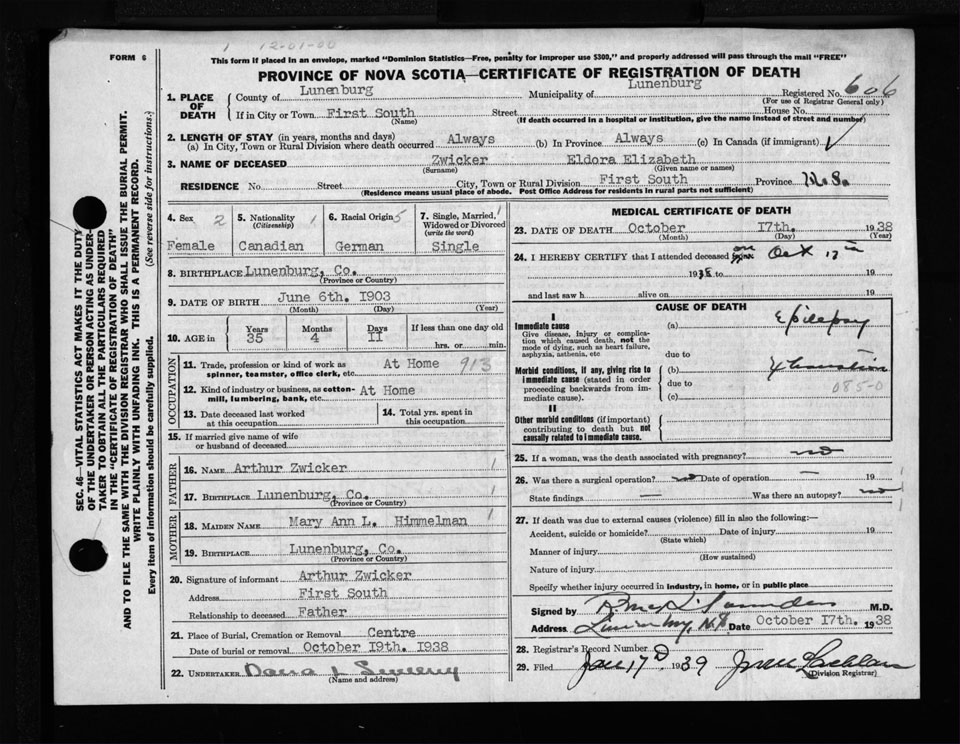 1 12-01-00
FORM 6
This form if in an envelope, marked "Dominion Statistics—Free, penalty for improper use $300," and properly addressed will pass through the mail "FREE"
PROVINCE OF NOVA SCOTIA—CERTIFICATE OF REGISTRATION OF DEATH
1. PLACE OF DEATH
County of Lunenburg Municipality of Lunenburg Registered No. 606
(For use of Registrar General only)
If in City or Town First South Street House No.
(Name) (If death occurred in a hospital or institution, give the name instead of street and number)
2. LENGTH OF STAY (in years, months and days)
(a) In City, Town or Rural Division where death occurred Always (b) In Province Always (c) In Canada (if immigrant)
3. NAME OF DECEASED Zwicker Eldora Elizabeth
(Surname) (Given name or names)
RESIDENCE No. Street City, Town or Rural Division First South Province N.S.
(Residence means usual place of abode. Post Office Address for residents in rural parts not sufficient)
SEC. 46—VITAL STATISTICS ACT MAKES IT THE DUTY
OF THE UNDERTAKER OR PERSON ACTING AS UNDER-
TAKER TO OBTAIN ALL THE PARTICULARS REQUIRED
IN THE "CERTIFICATE OF REGISTRATION OF DEATH"
AND TO FILE THE SAME WITH THE DIVISION REGISTRAR WHO SHALL ISSUE THE BURIAL PERMIT.
WRITE PLAINLY WITH UNFADING INK. THIS IS A PERMANENT RECORD.
Every item of information should be carefully supplied. (See reverse side for instructions.)
4. Sex 2 5. Nationality 1 6. Racial Origin 5 7. Single, Married, 1
(Citizenship) Widowed or Divorced
(write the word)
Female Canadian German Single
8. BIRTHPLACE Lunenburg, Co.
(Province or Country)
9. DATE OF BIRTH June 6th. 1903
(Month) (Day) (Year)
10. AGE in Years Months Days If less than one day old
35 4 11 hrs. or min.
OCCUPATION
11. Trade, profession or kind of work as At Home 913
spinner, teamster, office clerk, etc.
12. Kind of industry or business, as cotton- At Home
mill, lumbering, bank, etc.
13. Date deceased last worked at this occupation
14. Total yrs. spent in this occupation
15. If married give name of wife
or husband of deceased
FATHER
16. NAME Arthur Zwicker 1
17. BIRTHPLACE Lunenburg, Co. 1
(Province or Country)
MOTHER
18. MAIDEN NAME Mary Ann L. Himmelman 1
19. BIRTHPLACE Lunenburg, Co.
(Province or Country)
20. Signature of informant Arthur Zwicker
Address First South
Relationship to deceased Father
21. Place of Burial, Cremation or Removal Centre
Date of burial or removal October 19th. 1938
22. UNDERTAKER
(Name and address)
MEDICAL CERTIFICATE OF DEATH
23. DATE OF DEATH October 17th. 1938
(Month) (Day) (Year)
24. I HEREBY CERTIFY that I attended deceased on Oct 17th
1938 to 19
and last saw h alive on 19
CAUSE OF DEATH
I
Immediate cause (a) Epilepsy
Give disease, injury or complica-
tion which caused death, not the
mode of dying, such as heart failure,
asphyxia, asthenia, etc
due to
Morbid conditions, if any, giving rise to (b) Exhaustion
immediate cause (stated in order due to
proceeding backwards from im- 085-0
mediate cause). (c)
II
Other morbid conditions (if important)
contributing to death but not
causally related to immediate cause.
25. If a woman, was the death associated with pregnancy? no
26. Was there a surgical operation? no Date of operation — 19
State findings — Was there an autopsy? no
27. If death was due to external causes (violence) fill in also the following:—
Accident, suicide or homicide? Date of injury 19
(State which)
Manner of injury
(How sustained)
Nature of injury
Specify whether injury occurred in industry, in home, or in public place
Signed by Saunders M.D.
Address Lunenburg, N.S. Date October 17th. 1938
28. Registrar's Record Number
29. Filed Jan 17 1939
(Division Registrar)